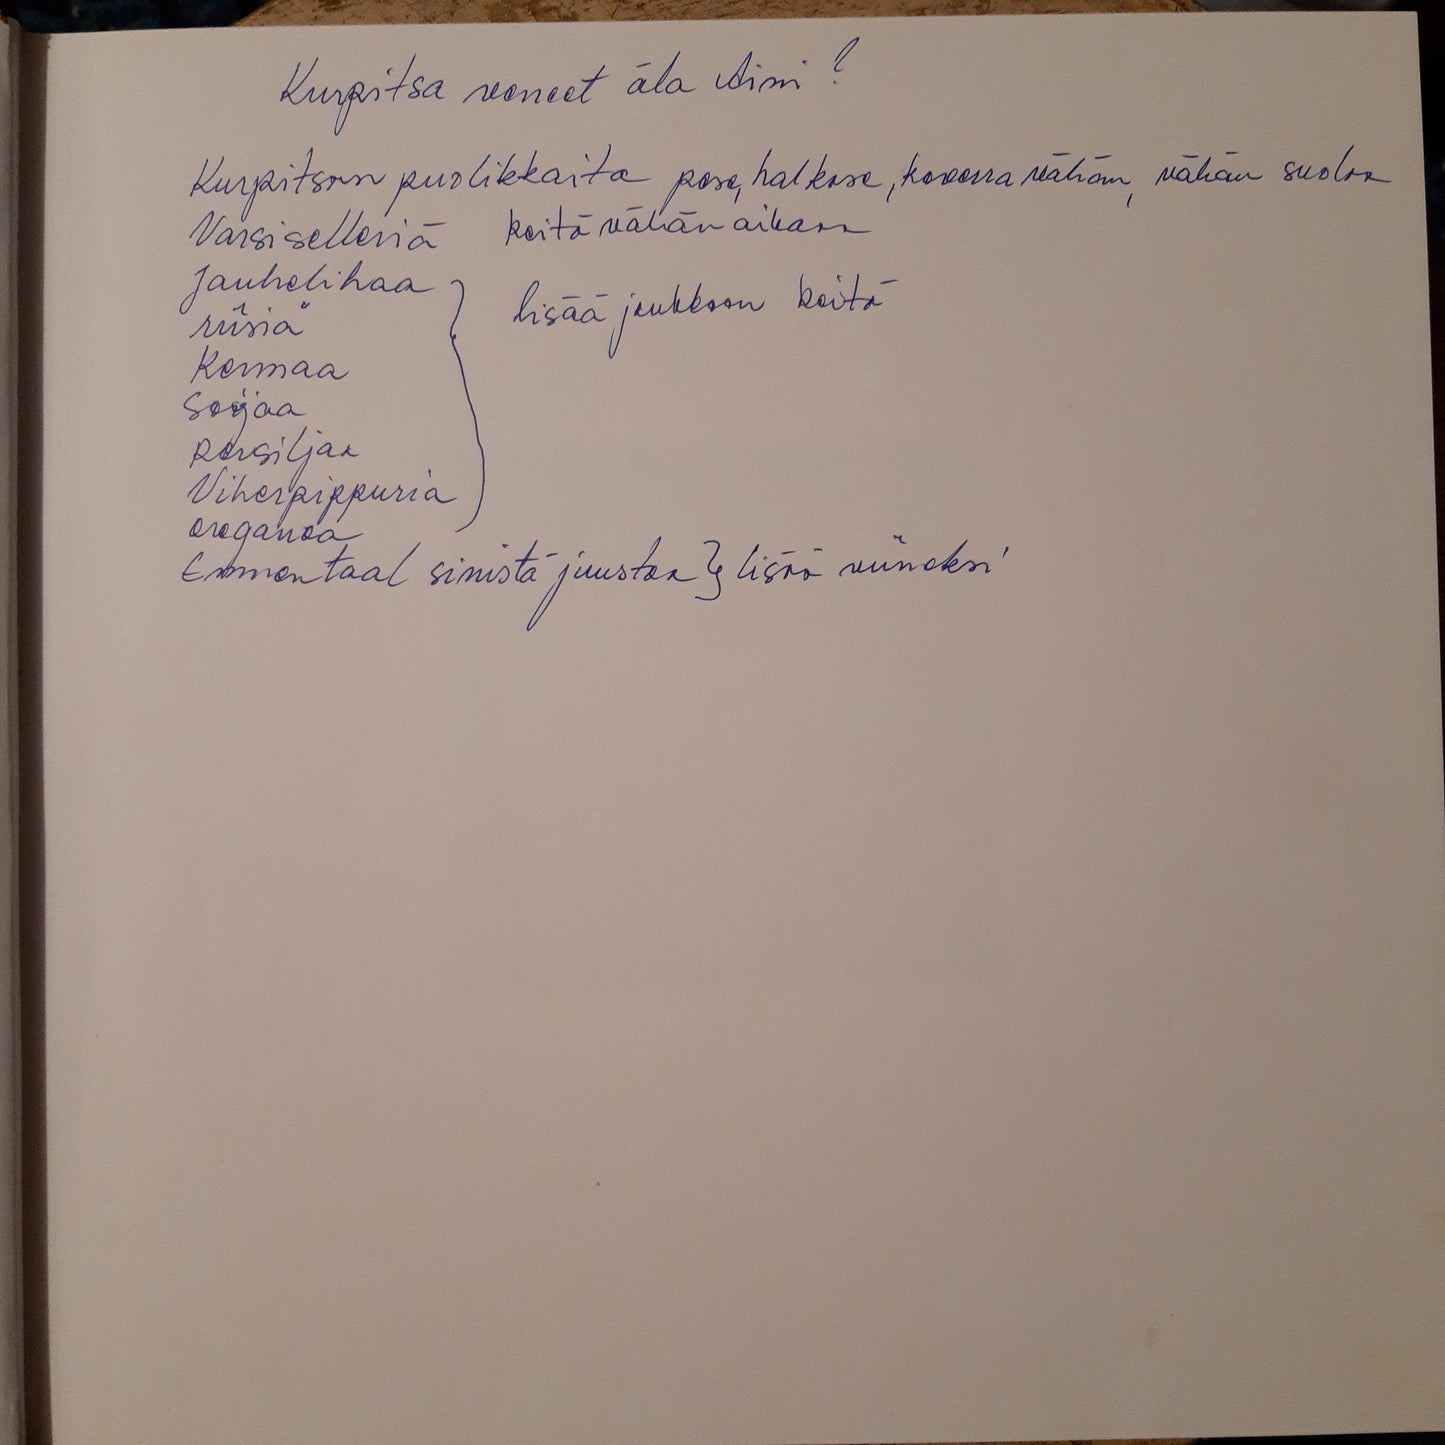 Kurpitsa veneet äla Aimi ?
Kurpitsan puolikkaita pese, halkase, koverra vähän, vähän suolaa
Varsiselleriä keitä vähän aikaa
Jauhelihaa
riisiä lisää joukkoon keitä
Kermaa
Soijaa
persiljaa
Viherpippuria
oreganoa
Emmentaal sinistä juustoa } lisää viimeksi